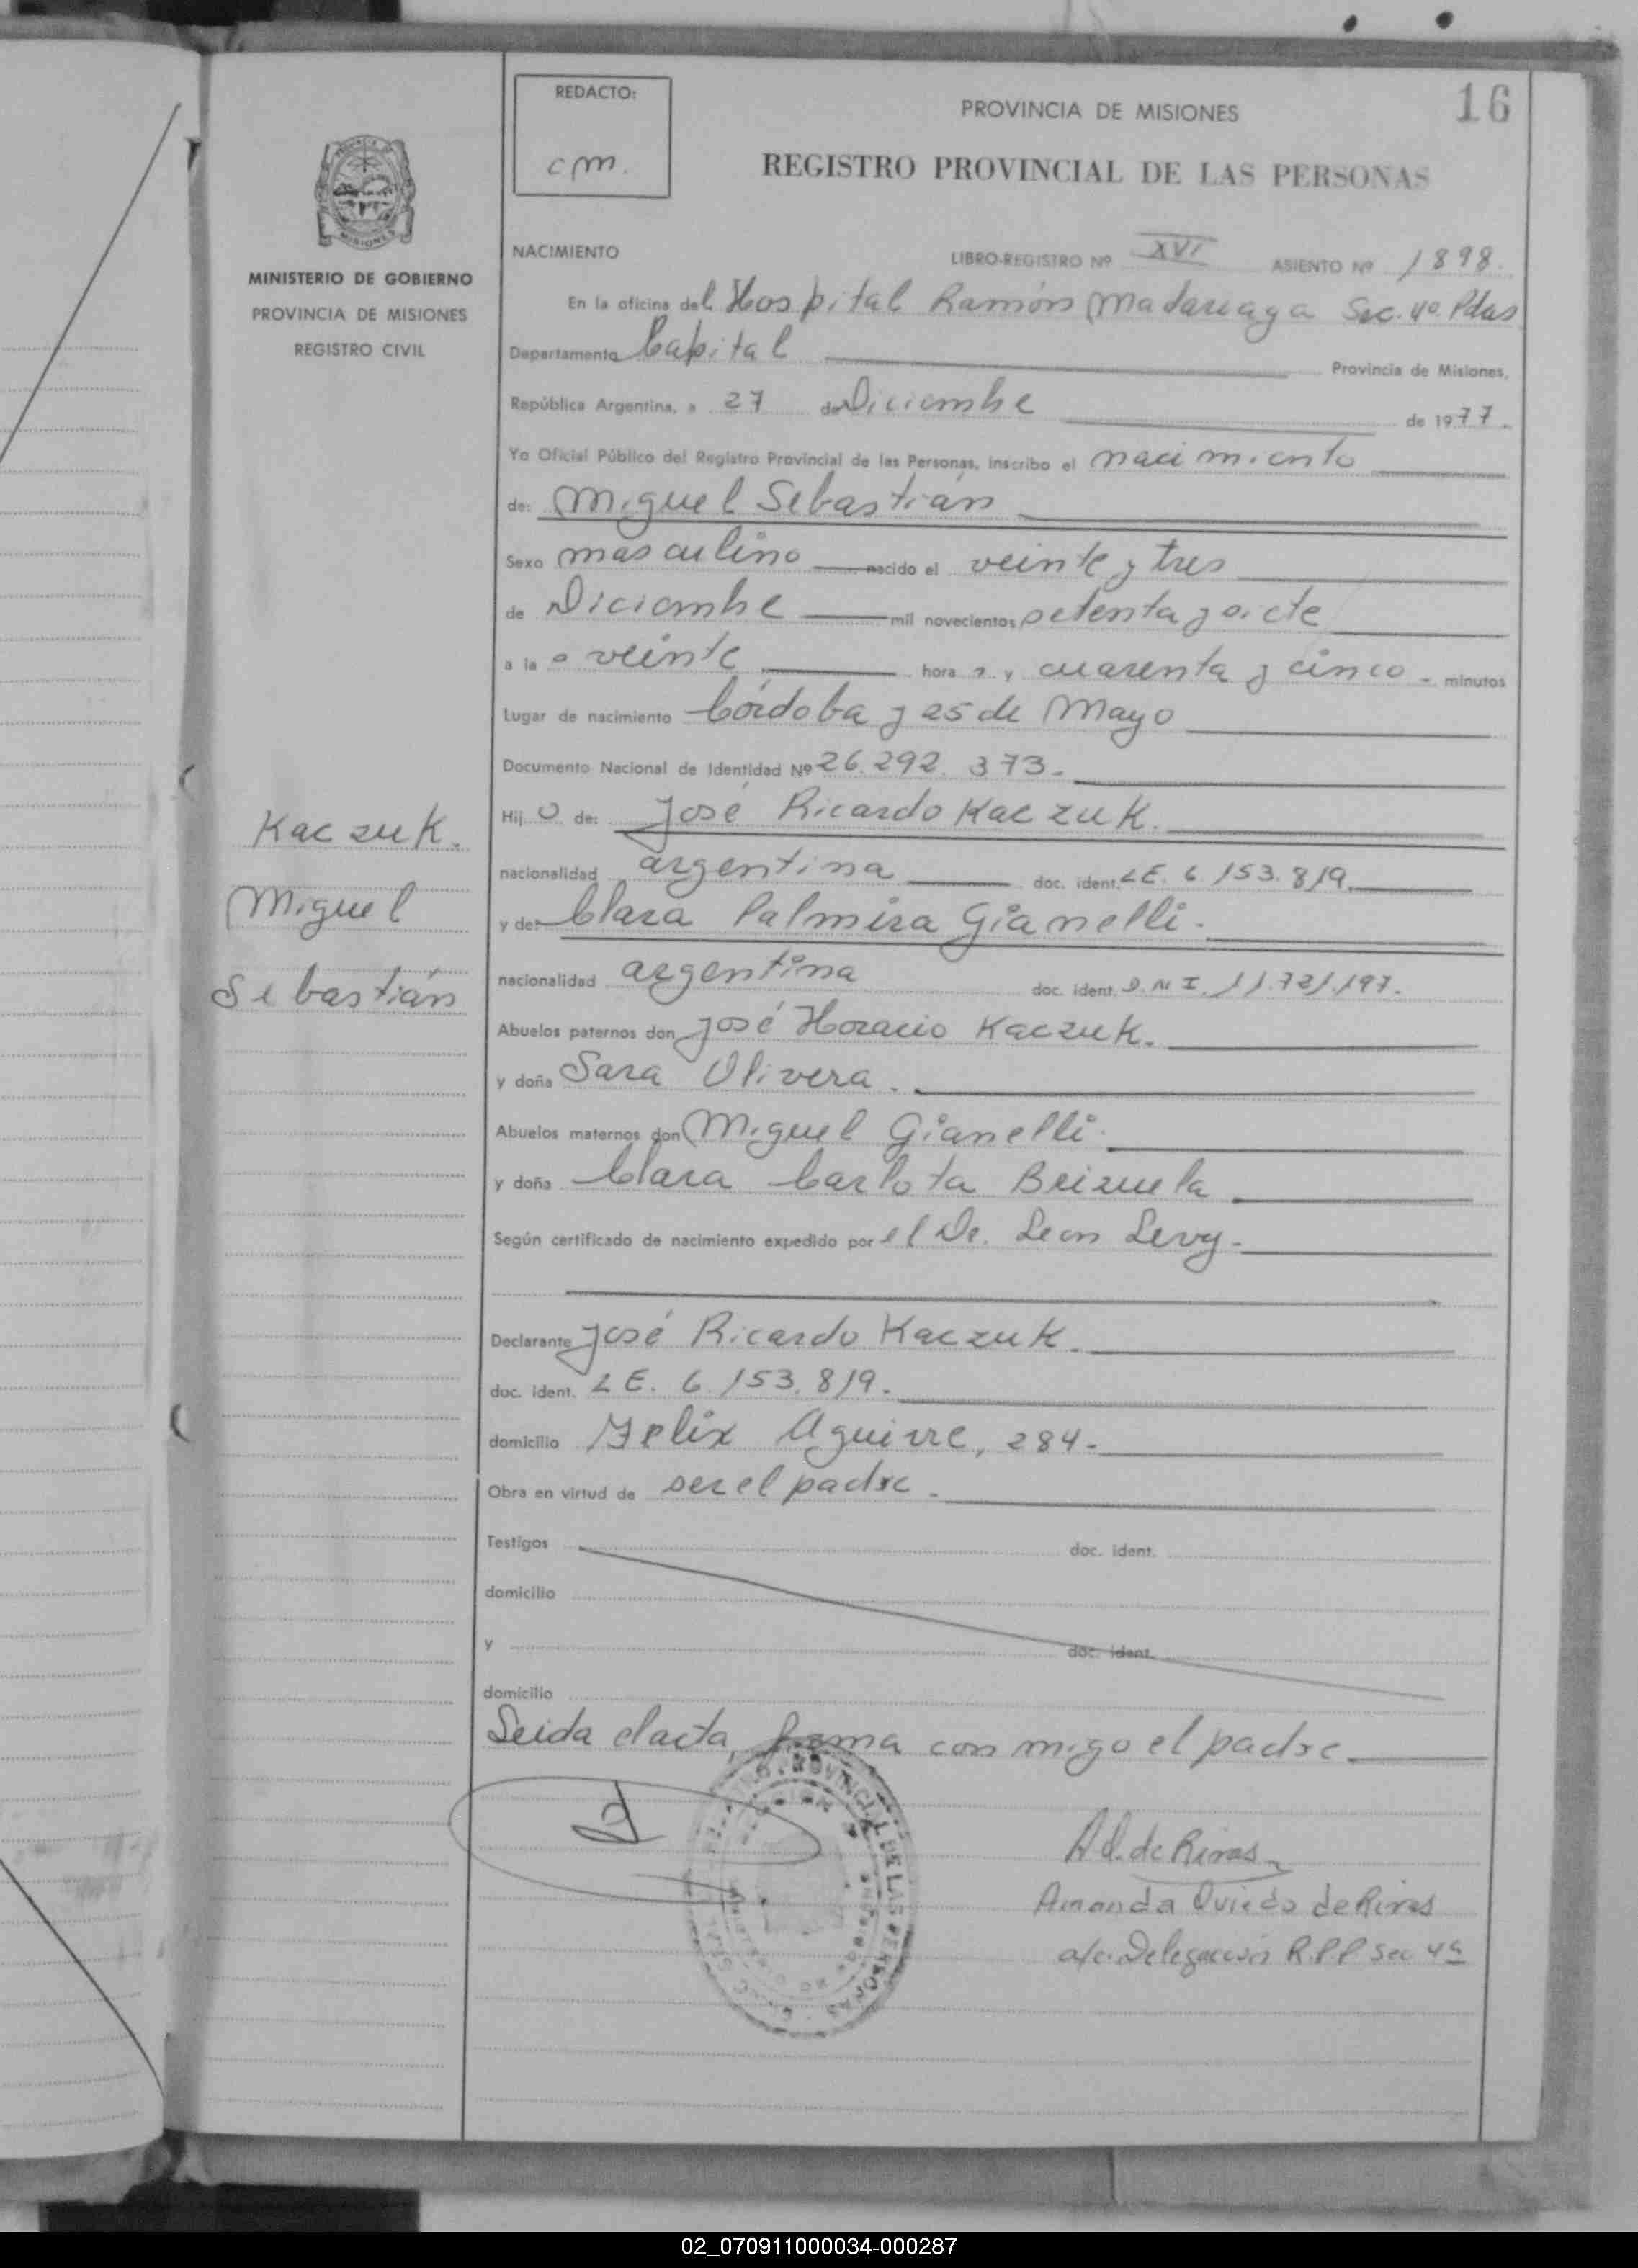 REDACTO:
cm.
PROVINCIA DE MISIONES
16
REGISTRO PROVINCIAL DE LAS PERSONAS
MISIONES
MINISTERIO DE GOBIERNO
PROVINCIA DE MISIONES
REGISTRO CIVIL
NACIMIENTO
LIBRO-REGISTRO Nº XVI ASIENTO Nº 1898.
En la oficina del Hospital Ramón Madariaga Sec. 4º Pdas
Departamento Capital Provincia de Misiones,
República Argentina, a 27 de Diciembre de 1977.
Yo Oficial Público del Registro Provincial de las Personas, inscribo el nacimiento
de: Miguel Sebastián
Sexo masculino nacido el veinte y tres
de Diciembre mil novecientos setenta y siete
a la s veinte hora s y cuarenta y cinco - minutos
Lugar de nacimiento Córdoba y 25 de Mayo
Documento Nacional de Identidad Nº 26.292.373.-
Hij o de: José Ricardo Kaczuk.
nacionalidad argentina doc. ident. LE. 6.153.819.
y de: Clara Palmira Gianelli.
nacionalidad argentina doc. ident. D.N.I. 11.721.197.
Abuelos paternos don José Horacio Kaczuk.
y doña Sara Olivera.
Abuelos maternos don Miguel Gianelli.
y doña Clara Carlota Brizuela
Según certificado de nacimiento expedido por el Dr. Leon Levy.
Declarante José Ricardo Kaczuk.
doc. ident. LE. 6.153.819.
domicilio Felix Aguirre, 284.
Obra en virtud de ser el padre.
Testigos doc. ident.
domicilio
y doc. ident.
domicilio
Leida el acta, firma con migo el padre.
Kaczuk.
Miguel
Sebastián
PROVINCIAL DE LAS PERSONAS
A.O. de Rivas
Amanda Oviedo de Rivas
a/c. Delegación R.P.P Sec 4ª
02_070911000034-000287